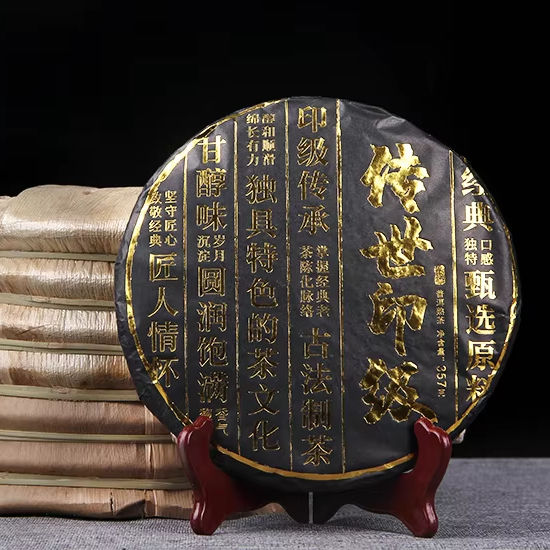 经典 口感独特 甄选原料
传世印级
普洱熟茶 净含量:357克
印级传承 掌握经典老茶陈化脉络 古法制茶
醇和顺滑 绵长有力 独具特色的茶文化
甘醇味 岁月沉淀 圆润饱满
坚守匠心 致敬经典 匠人情怀